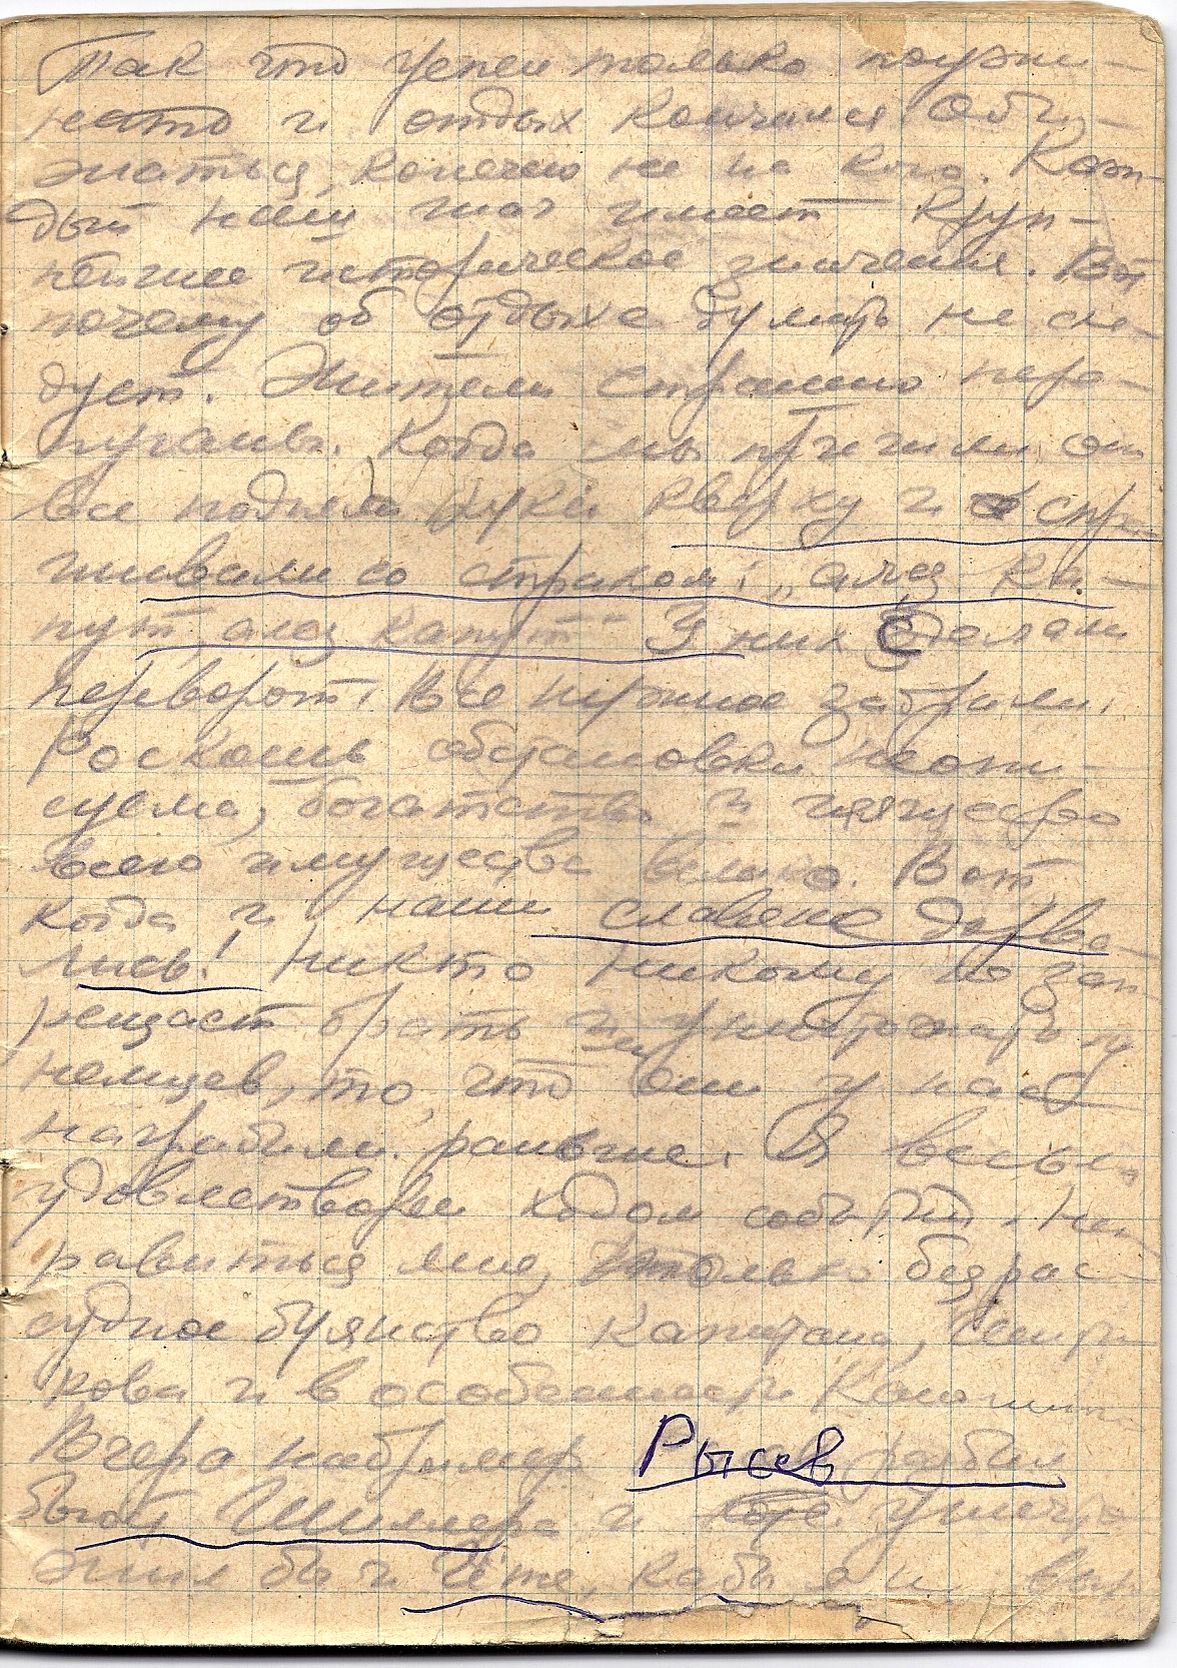 Так что успел только поужи-
нать и отдых кончился Оби-
жаться, конечно не на кого. Каж-
дый наш шаг имеет круп-
нейшее историческое значение. Вот
почему об отдыхе думать не сле-
дует. Жители страшно пере-
пуганы. Когда мы пришли они
все подняли руки кверху и спра-
шивали со страхом: „алез ка-
пут, алез капут" У них сделали
переворот. Все нужное забрали.
Роскошь обстановки неопи-
суема, богатство и изящество
всего имущества велико. Вот
когда и наши славяне дорва-
лись! Никто никому не зап-
рещает брать и уничтожать у
немцев, то, что они у нас
награбили раньше. Я весьма
удовлетворен ходом событий. Не н
равиться мне, только безрас-
судное буянство Капитана,
кова и в особенности
Вчера например Рысев разбил
бюст Шиллера и уничто
жил бы и Гёте, кабы я не выр